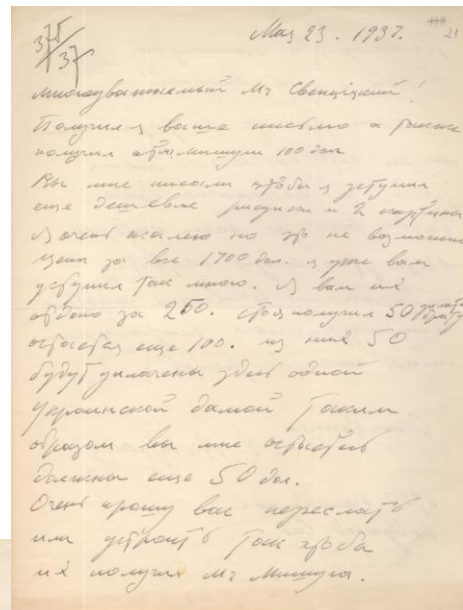 375/37
Мая 23. 1937.
21
многоуважаемый Мг Свенціцкий!
Получил я ваше письмо а также
получил от Мишуги 100 дол.
Вы мне писали чтобы я уступил
еще дешевле рисунки и 2 картины
Я очень жалею но это не возможно
цена за все 1700 дол. я уже вам
уступил так много. Я вам их
отдаю за 250. я получил 50
остается еще 100. из них 50
будут уплачены здесь одной
украинской дамой таким
образом вы мне остаетесь
должны еще 50 дол.
Очень прошу вас переслать
или устроить так чтобы
их получил Мг Мишуга.